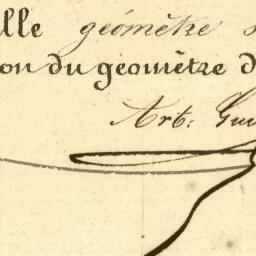 lle géomètre
on du géomètre d
Art: Gui